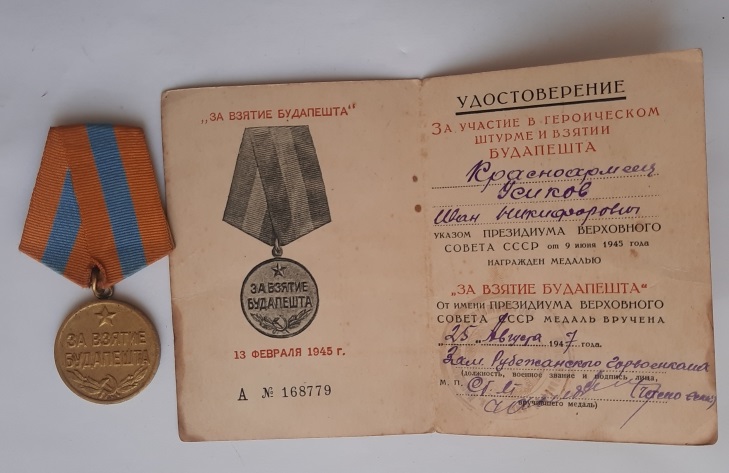 ЗА ВЗЯТИЕ
БУДАПЕШТА
„ЗА ВЗЯТИЕ БУДАПЕШТА"
ЗА ВЗЯТИЕ
БУДАПЕШТА
13 ФЕВРАЛЯ 1945 г.
А № 168779
УДОСТОВЕРЕНИЕ
ЗА УЧАСТИЕ В ГЕРОИЧЕСКОМ
ШТУРМЕ И ВЗЯТИИ
БУДАПЕШТА
Красноармеец
Усиков
Иван Никифорович
УКАЗОМ ПРЕЗИДИУМА ВЕРХОВНОГО
СОВЕТА СССР от 9 июня 1945 года
НАГРАЖДЕН МЕДАЛЬЮ
„ЗА ВЗЯТИЕ БУДАПЕШТА"
От имени ПРЕЗИДИУМА ВЕРХОВНОГО
СОВЕТА СССР МЕДАЛЬ ВРУЧЕНА
„25" Августа 1947 года.
Зам. Рубежанского Горвоенкома
(должность, военное звание и подпись лица,
М. П. Ст. л-т
вручившего медаль)